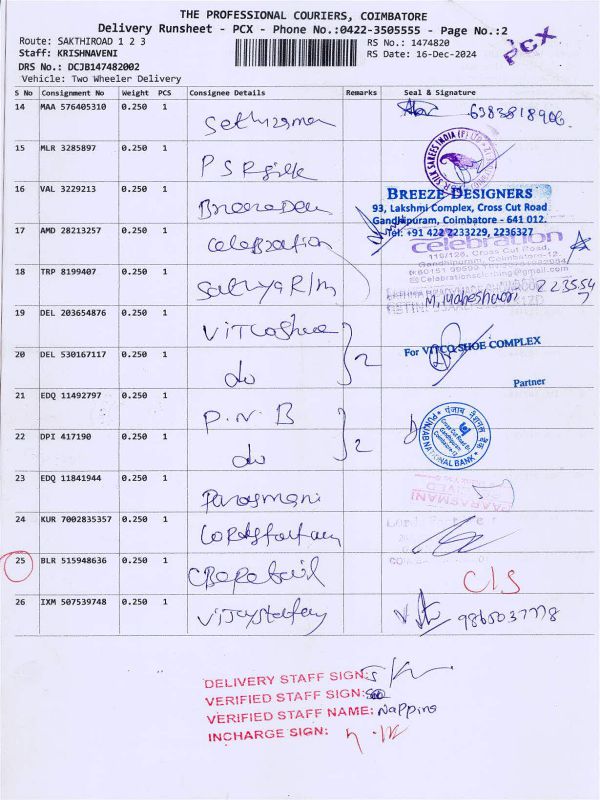 THE PROFESSIONAL COURIERS, COIMBATORE
Delivery Runsheet - PCX - Phone No.:0422-3505555 - Page No.:2
PCX
Route: SAKTHIROAD 1 2 3
RS No.: 1474820
Staff: KRISHNAVENI
RS Date: 16-Dec-2024
DRS No.: DCJB147482002
Vehicle: Two Wheeler Delivery
S No Consignment No Weight PCS Consignee Details Remarks Seal & Signature
14 MAA 576405310 0.250 1 6383818906
15 MLR 3285897 0.250 1 P S R
16 VAL 3229213 0.250 1
BREEZE DESIGNERS
93, Lakshmi Complex, Cross Cut Road
Gandhipuram, Coimbatore - 641 012.
Tel: +91 422 2233229, 2236327
17 AMD 28213257 0.250 1 Celebration
celebration
18 TRP 8199407 0.250 1 M. Maheshwari
19 DEL 203654876 0.250 1
2
20 DEL 530167117 0.250 1 do
For VITCO SHOE COMPLEX
Partner
21 EDQ 11492797 0.250 1 P.N.B
2
22 DPI 417190 0.250 1 do
पंजाब नैशनल बैंक
PUNJAB NATIONAL BANK
Cross Cut Road Br.
Gandhipuram
Coimbatore-12
23 EDQ 11841944 0.250 1 Parasmani
PARASMANI
24 KUR 7002835357 0.250 1
25 BLR 515948636 0.250 1 C/S
26 IXM 507539748 0.250 1 9865037778
DELIVERY STAFF SIGN:
VERIFIED STAFF SIGN:
VERIFIED STAFF NAME:
INCHARGE SIGN: